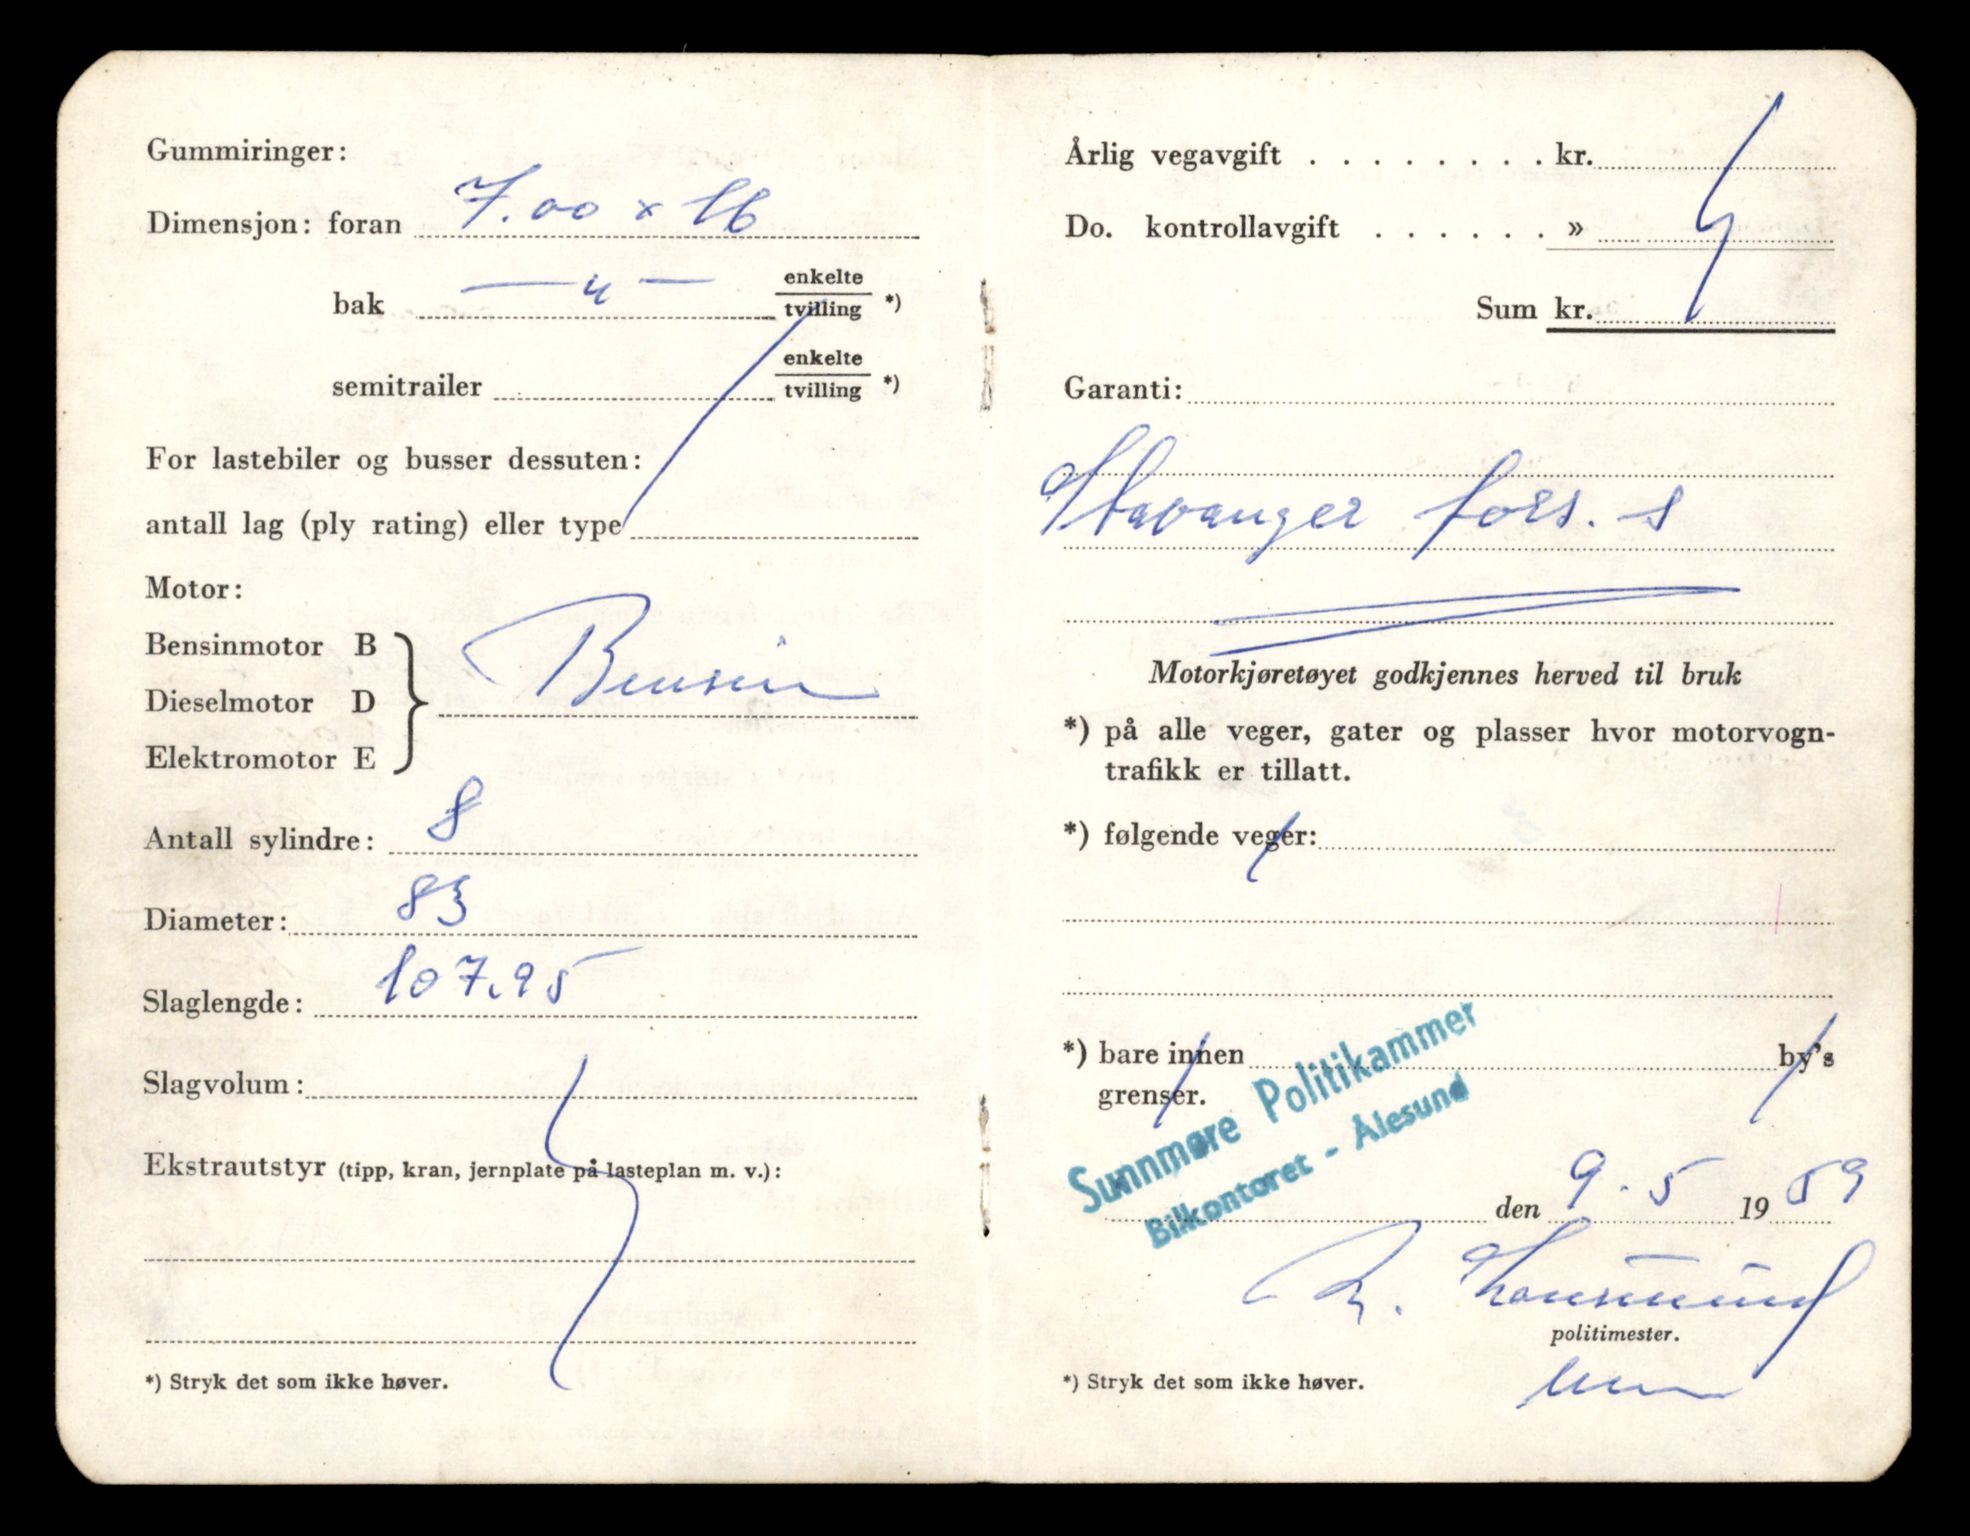 Gummiringer:
Dimensjon: foran 7.00 x 16
bak — " — enkelte
tvilling *)
semitrailer enkelte
tvilling *)
For lastebiler og busser dessuten:
antall lag (ply rating) eller type
Motor:
Bensinmotor B
Dieselmotor D
Elektromotor E
Bensin
Antall sylindre: 8
Diameter: 83
Slaglengde: 107.95
Slagvolum:
Ekstrautstyr (tipp, kran, jernplate på lasteplan m. v.):
*) Stryk det som ikke høver.
Årlig vegavgift . . . . . . . . kr.
Do. kontrollavgift . . . . . . »
Sum kr.
Garanti:
Stavanger fors. s
Motorkjøretøyet godkjennes herved til bruk
*) på alle veger, gater og plasser hvor motorvogn-
trafikk er tillatt.
*) følgende veger:
*) bare innen by's
grenser.
Sunnmøre Politikammer
Bilkontoret - Ålesund
den 9.5 1959
politimester.
*) Stryk det som ikke høver.